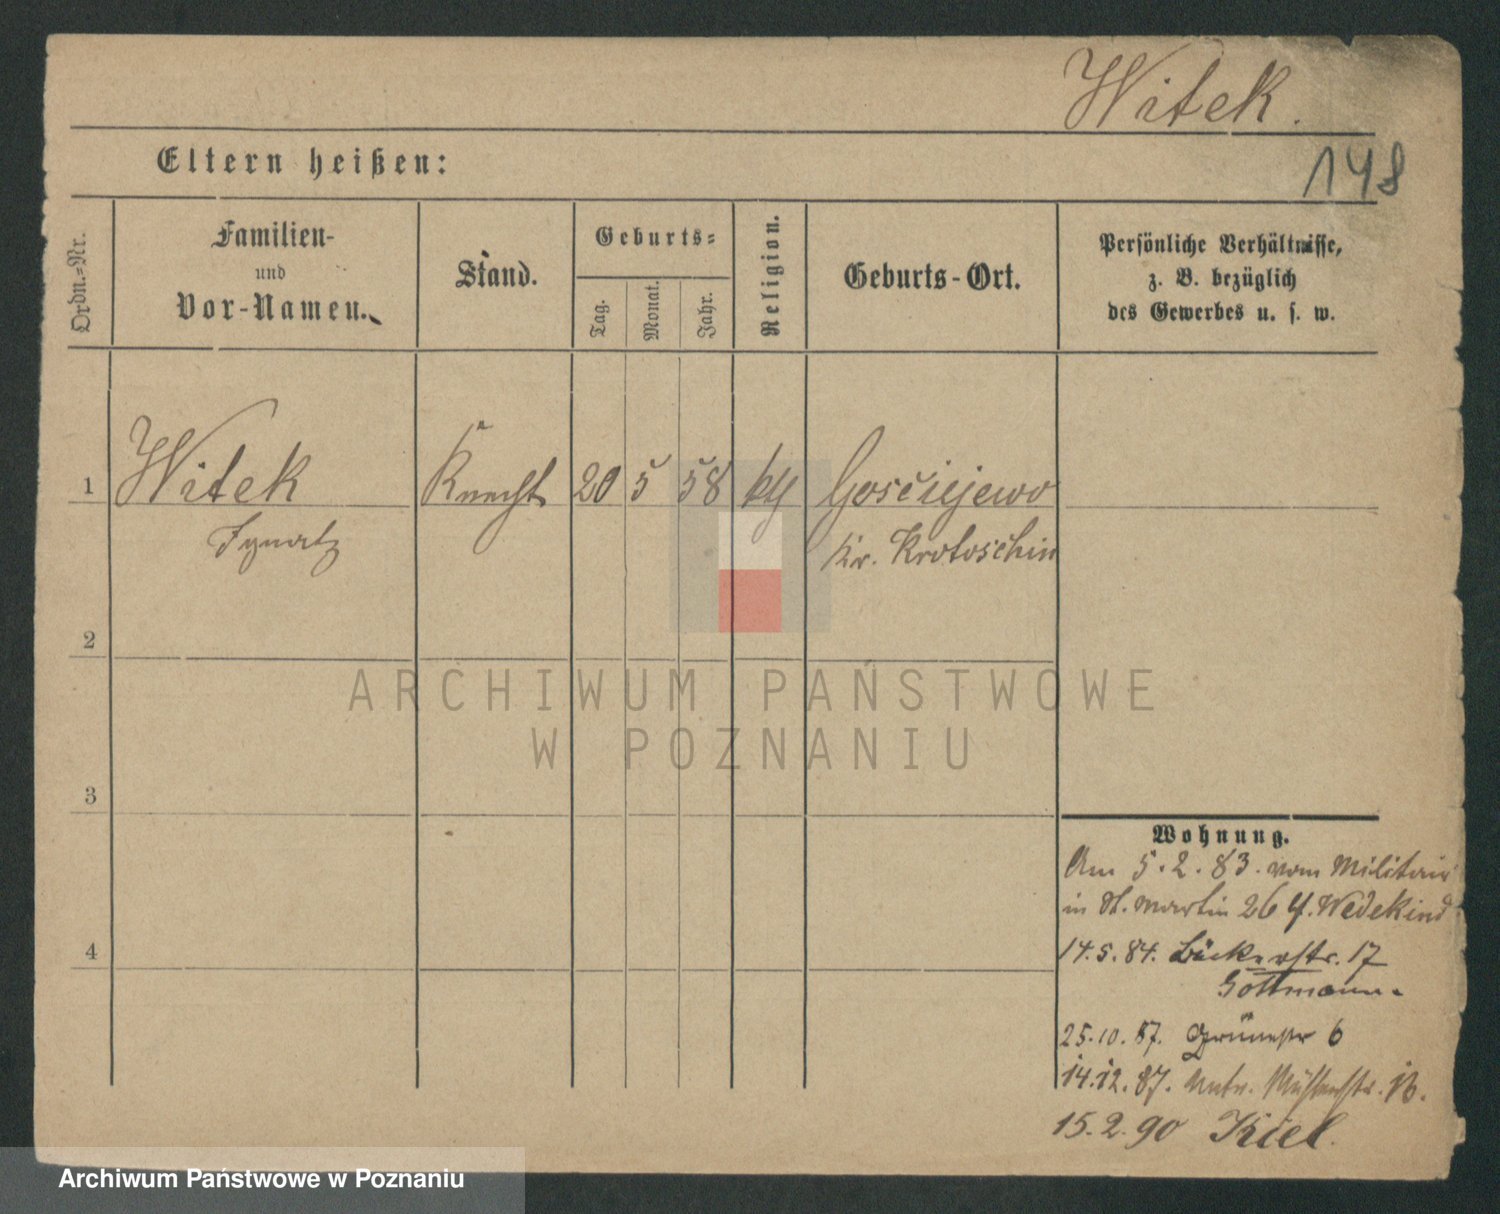 Witek.
148
Eltern heißen:
Ordn.=Nr.
Familien-
und
Vor-Namen.
Stand.
Geburts=
Tag.
Monat.
Jahr.
Religion.
Geburts-Ort.
Persönliche Verhältnisse,
z. B. bezüglich
des Gewerbes u. s. w.
1 Witek Knecht 20 5 58 kth Gościejewo
Ignatz Kr. Krotoschin
2
3
4
Wohnung.
Am 5.2.83. vom Militair
in St. Martin 26 Wedekind
14.5.84. Bäckerstr. 17
Gottmann
25.10.87. Grünestr 6
14.12.87. Untr. Mühlenstr.
15.2.90 Kiel.
ARCHIWUM PAŃSTWOWE
W POZNANIU
Archiwum Państwowe w Poznaniu